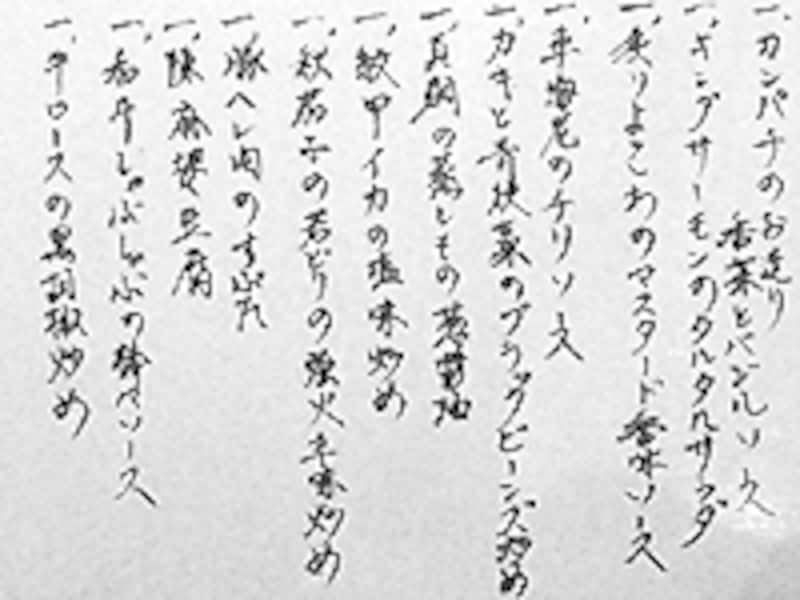 一、カンパチのお造り
香菜とバジルソース
一、キングサーモンのタルタルサラダ
一、炙りよこわのマスタード香味ソース
一、車海老のチリソース
一、カキと青梗菜のブラックビーンズ炒め
一、真鯛の蒸しその葱醤油
一、紋甲イカの塩味炒め
一、秋茄子の若どりの強火辛味炒め
一、豚ヘレ肉のすぶた
一、陳麻婆豆腐
一、和牛しゃぶしゃぶの辣ソース
一、牛ロースの黒胡椒炒め